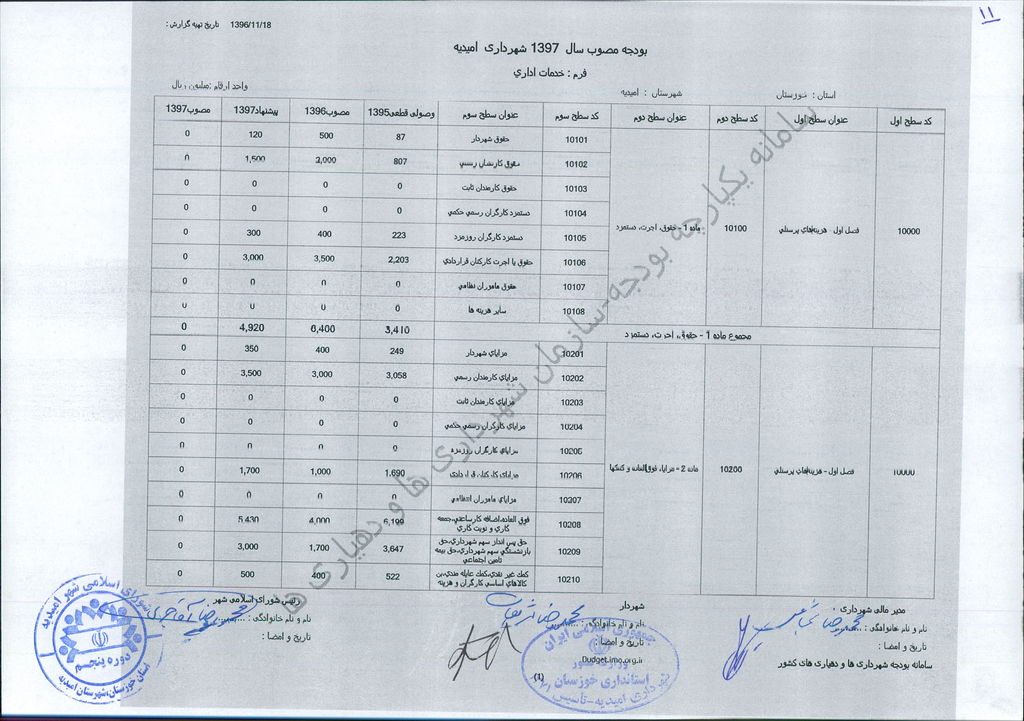 ۱۱
تاریخ تهیه گزارش : 1396/11/18
بودجه مصوب سال 1397 شهرداری امیدیه
فرم : خدمات اداري
استان : خوزستان شهرستان : امیدیه واحد ارقام :میلیون ریال
کد سطح اول عنوان سطح اول کد سطح دوم عنوان سطح دوم کد سطح سوم عنوان سطح سوم وصولی قطعی1395 مصوب1396 پیشنهاد1397 مصوب1397
10000 فصل اول - هزینه‌هاي پرسنلي 10100 ماده 1 - حقوق، اجرت، دستمزد
10101 حقوق شهردار 87 500 120 0
10102 حقوق کارمندان رسمي 807 2,000 1,500 0
10103 حقوق کارمندان ثابت 0 0 0 0
10104 دستمزد کارگران رسمي حکمي 0 0 0 0
10105 دستمزد کارگران روزمزد 223 400 300 0
10106 حقوق یا اجرت کارکنان قراردادي 2,203 3,500 3,000 0
10107 حقوق ماموران نظامي 0 0 0 0
10108 سایر هزینه ها 0 0 0 0
مجموع ماده 1 - حقوق، اجرت، دستمزد 3,410 6,400 4,920 0
10000 فصل اول - هزینه‌هاي پرسنلي 10200 ماده 2 - مزایا، فوق‌العاده و کمکها
10201 مزایاي شهردار 249 400 350 0
10202 مزایاي کارمندان رسمي 3,058 3,000 3,500 0
10203 مزایاي کارمندان ثابت 0 0 0 0
10204 مزایاي کارگران رسمي حکمي 0 0 0 0
10205 مزایاي کارگران روزمزد 0 0 0 0
10206 مزایاي کارکنان قراردادي 1,690 1,000 1,700 0
10207 مزایاي ماموران انتظامي 0 0 0 0
10208 فوق العاده،اضافه کار ساعتي،جمعه کاري و نوبت کاري 6,199 4,000 5,430 0
10209 حق پس انداز سهم شهرداري،حق بازنشستگي سهم شهرداري،حق بیمه تامین اجتماعي 3,647 1,700 3,000 0
10210 کمك غیر نقدي،کمك عایله مندي،بن کالاهاي اساسي کارگران و هزینه 522 400 500 0
مدیر مالی شهرداری شهردار رئیس شورای اسلامی شهر
نام و نام خانوادگی : نام و نام خانوادگی : نام و نام خانوادگی :
تاریخ و امضا : تاریخ و امضا : تاریخ و امضا :
سامانه بودجه شهرداری ها و دهیاری های کشور
Budget.imo.org.ir
(1)
سامانه یکپارچه بودجه-سازمان شهرداری ها و دهیاری ها
شورای اسلامی شهر امیدیه
دوره پنجم
استان خوزستان،شهرستان امیدیه
جمهوری اسلامی ایران
وزارت کشور
استانداری خوزستان
شهرداری امیدیه-تأسیس